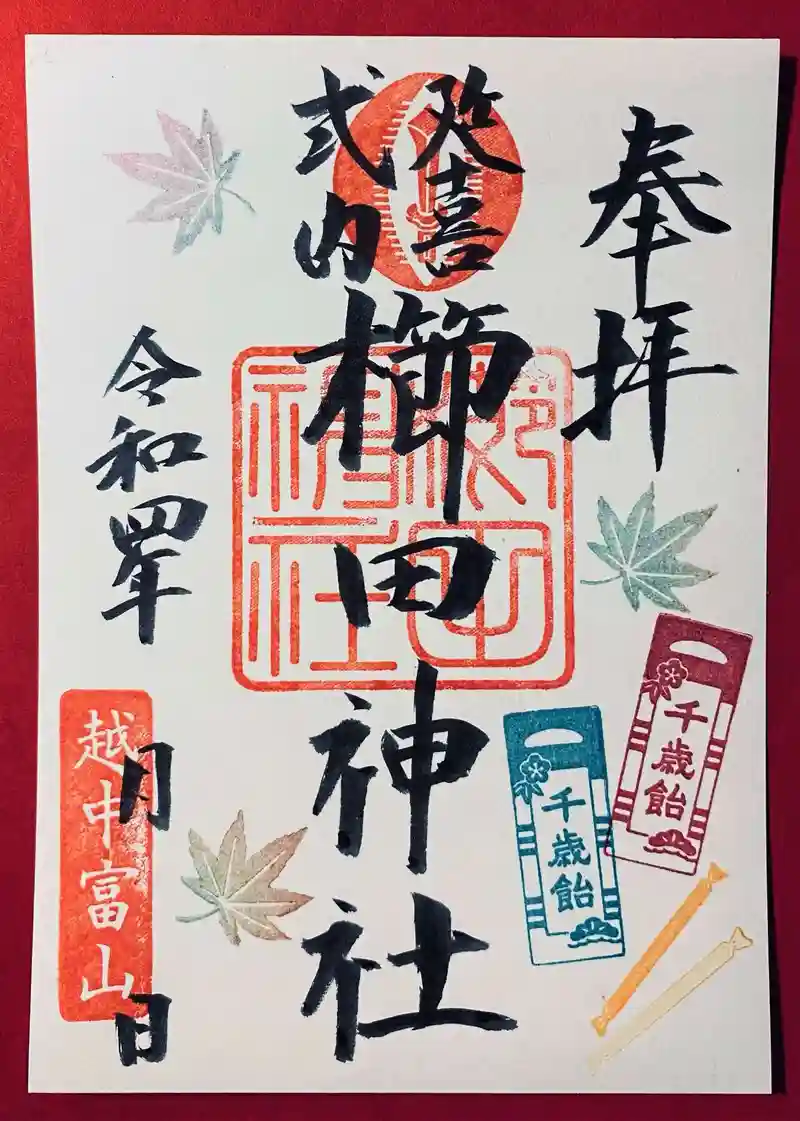 奉拝
延喜
式内
櫛田神社
櫛田
神社
令和四年
月
日
越中富山
千歳飴
千歳飴